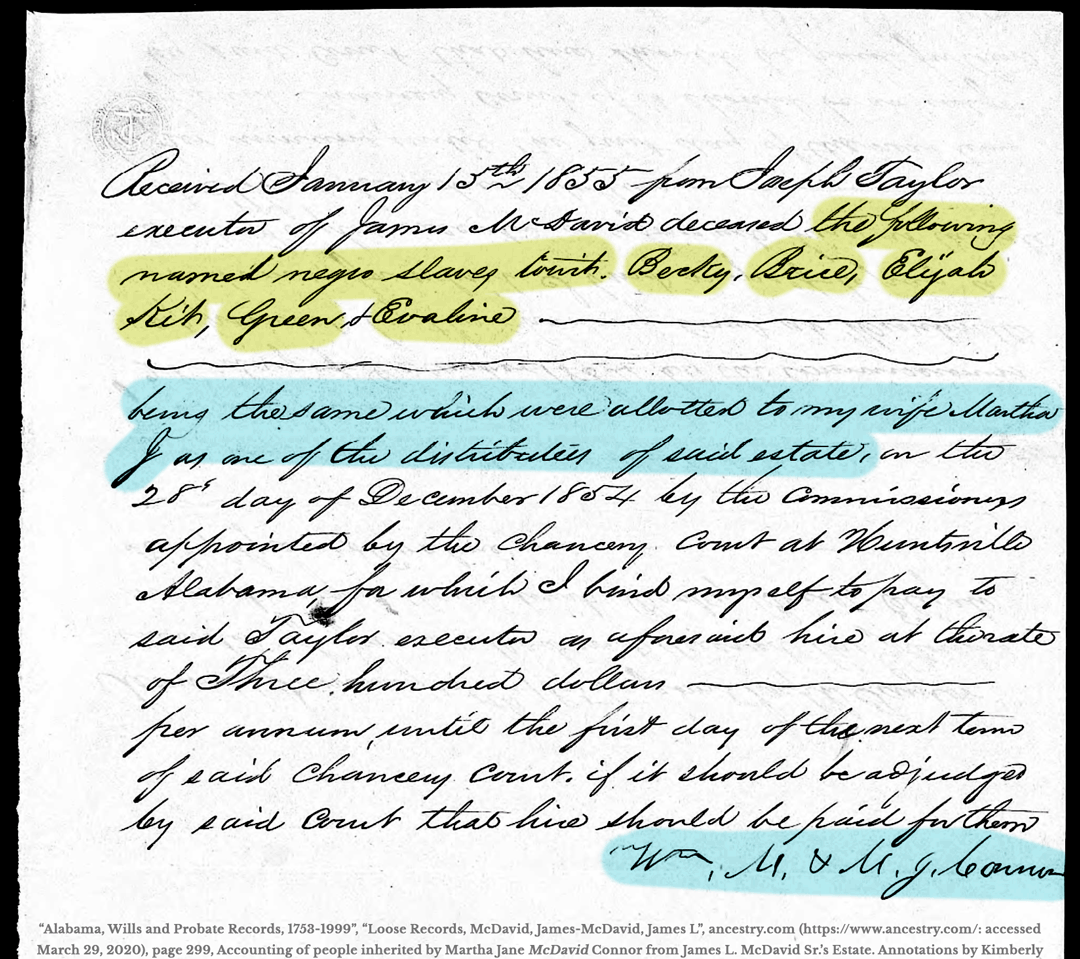 Received January 15th 1855 from Joseph Taylor
executor of James McDavid deceased the following
named negro slaves towit. Becky, Brice, Elijah
Kit, Green & Evaline
being the same which were allotted to my wife Martha
J as one of the distributees of said estate, on the
28th day of December 1854 by the Commissioners
appointed by the Chancery Court at Huntsville
Alabama, for which I bind myself to pay to
said Taylor executor as aforesaid hire at the rate
of Three hundred dollars
per annum, until the first day of the next term
of said Chancery Court. if it should be adjudged
by said Court that hire should be paid for them
Wm. M. & M. J. Connor
“Alabama, Wills and Probate Records, 1753-1999”, “Loose Records, McDavid, James-McDavid, James L”, ancestry.com (https://www.ancestry.com/: accessed
March 29, 2020), page 299, Accounting of people inherited by Martha Jane McDavid Connor from James L. McDavid Sr.'s Estate. Annotations by Kimberly